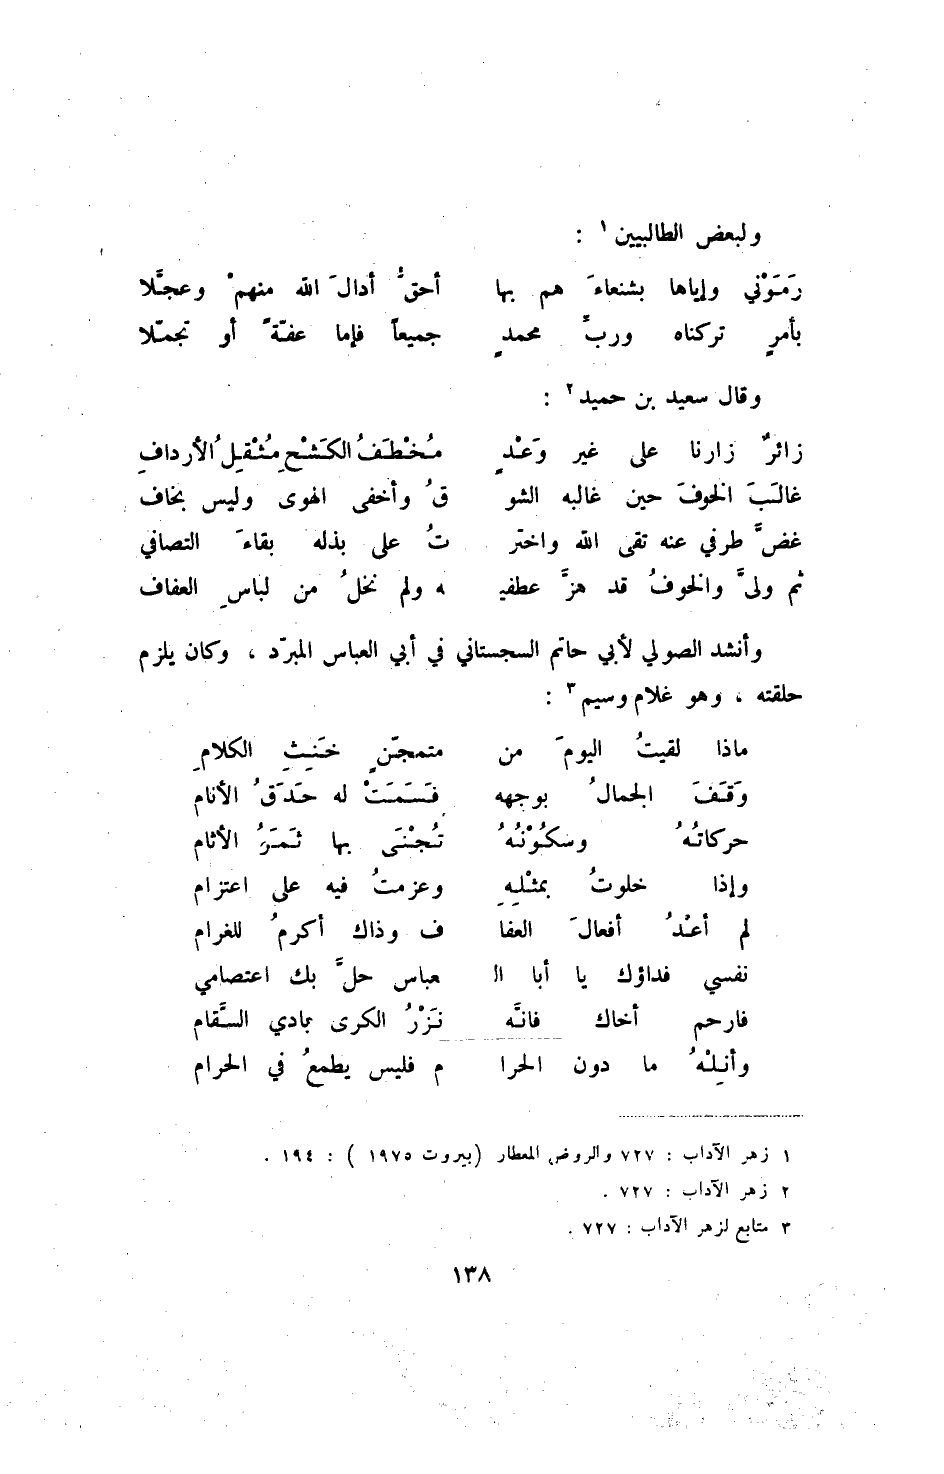 ولبعض الطالبيين ١ :
رَمَوْني وإياها بشنعاءَ هم بها أحقُّ أدالَ الله منهمْ وعجَّلا
بأمرٍ تركناه وربِّ محمدٍ جميعاً فإما عفّةً أو تجمّلا
وقال سعيد بن حميد ٢ :
زائرٌ زارنا على غير وَعْدٍ مُخْطَفُ الكَشْحِ مُثْقِلُ الأردافِ
غالَبَ الخوفَ حين غالبه الشو قُ وأخفى الهوى وليس بخاف
غضَّ طرفي عنه تقى الله واختر تُ على بذله بقاءَ التصافي
ثم ولىَّ والخوفُ قد هزَّ عطفيـ ـه ولم نخلُ من لباسِ العفاف
وأنشد الصولي لأبي حاتم السجستاني في أبي العباس المبرّد ، وكان يلزم
حلقته ، وهو غلام وسيم ٣ :
ماذا لقيتُ اليومَ من متمجّنٍ خَنِثِ الكلامِ
وَقَفَ الجمالُ بوجهه فَسَمَتْ له حَدَقُ الأنام
حركاتُهُ وسكُوْنُهُ تُجْنَى بها ثَمَرُ الأثام
وإذا خلوتُ بمثْلِهِ وعزمتُ فيه على اعتزام
لم أعْدُ أفعالَ العفا ف وذاك أكرمُ للغرام
نفسي فداؤك يا أبا الـ ـعباس حلَّ بك اعتصامي
فارحم أخاك فانَّه نَزْرُ الكرى بادي السَّقام
وأنِلْهُ ما دون الحرا م فليس يطمعُ في الحرام
١ زهر الآداب : ٧٢٧ والروض المعطار (بيروت ١٩٧٥ ) : ١٩٤ .
٢ زهر الآداب : ٧٢٧ .
٣ متابع لزهر الآداب : ٧٢٧ .
١٣٨